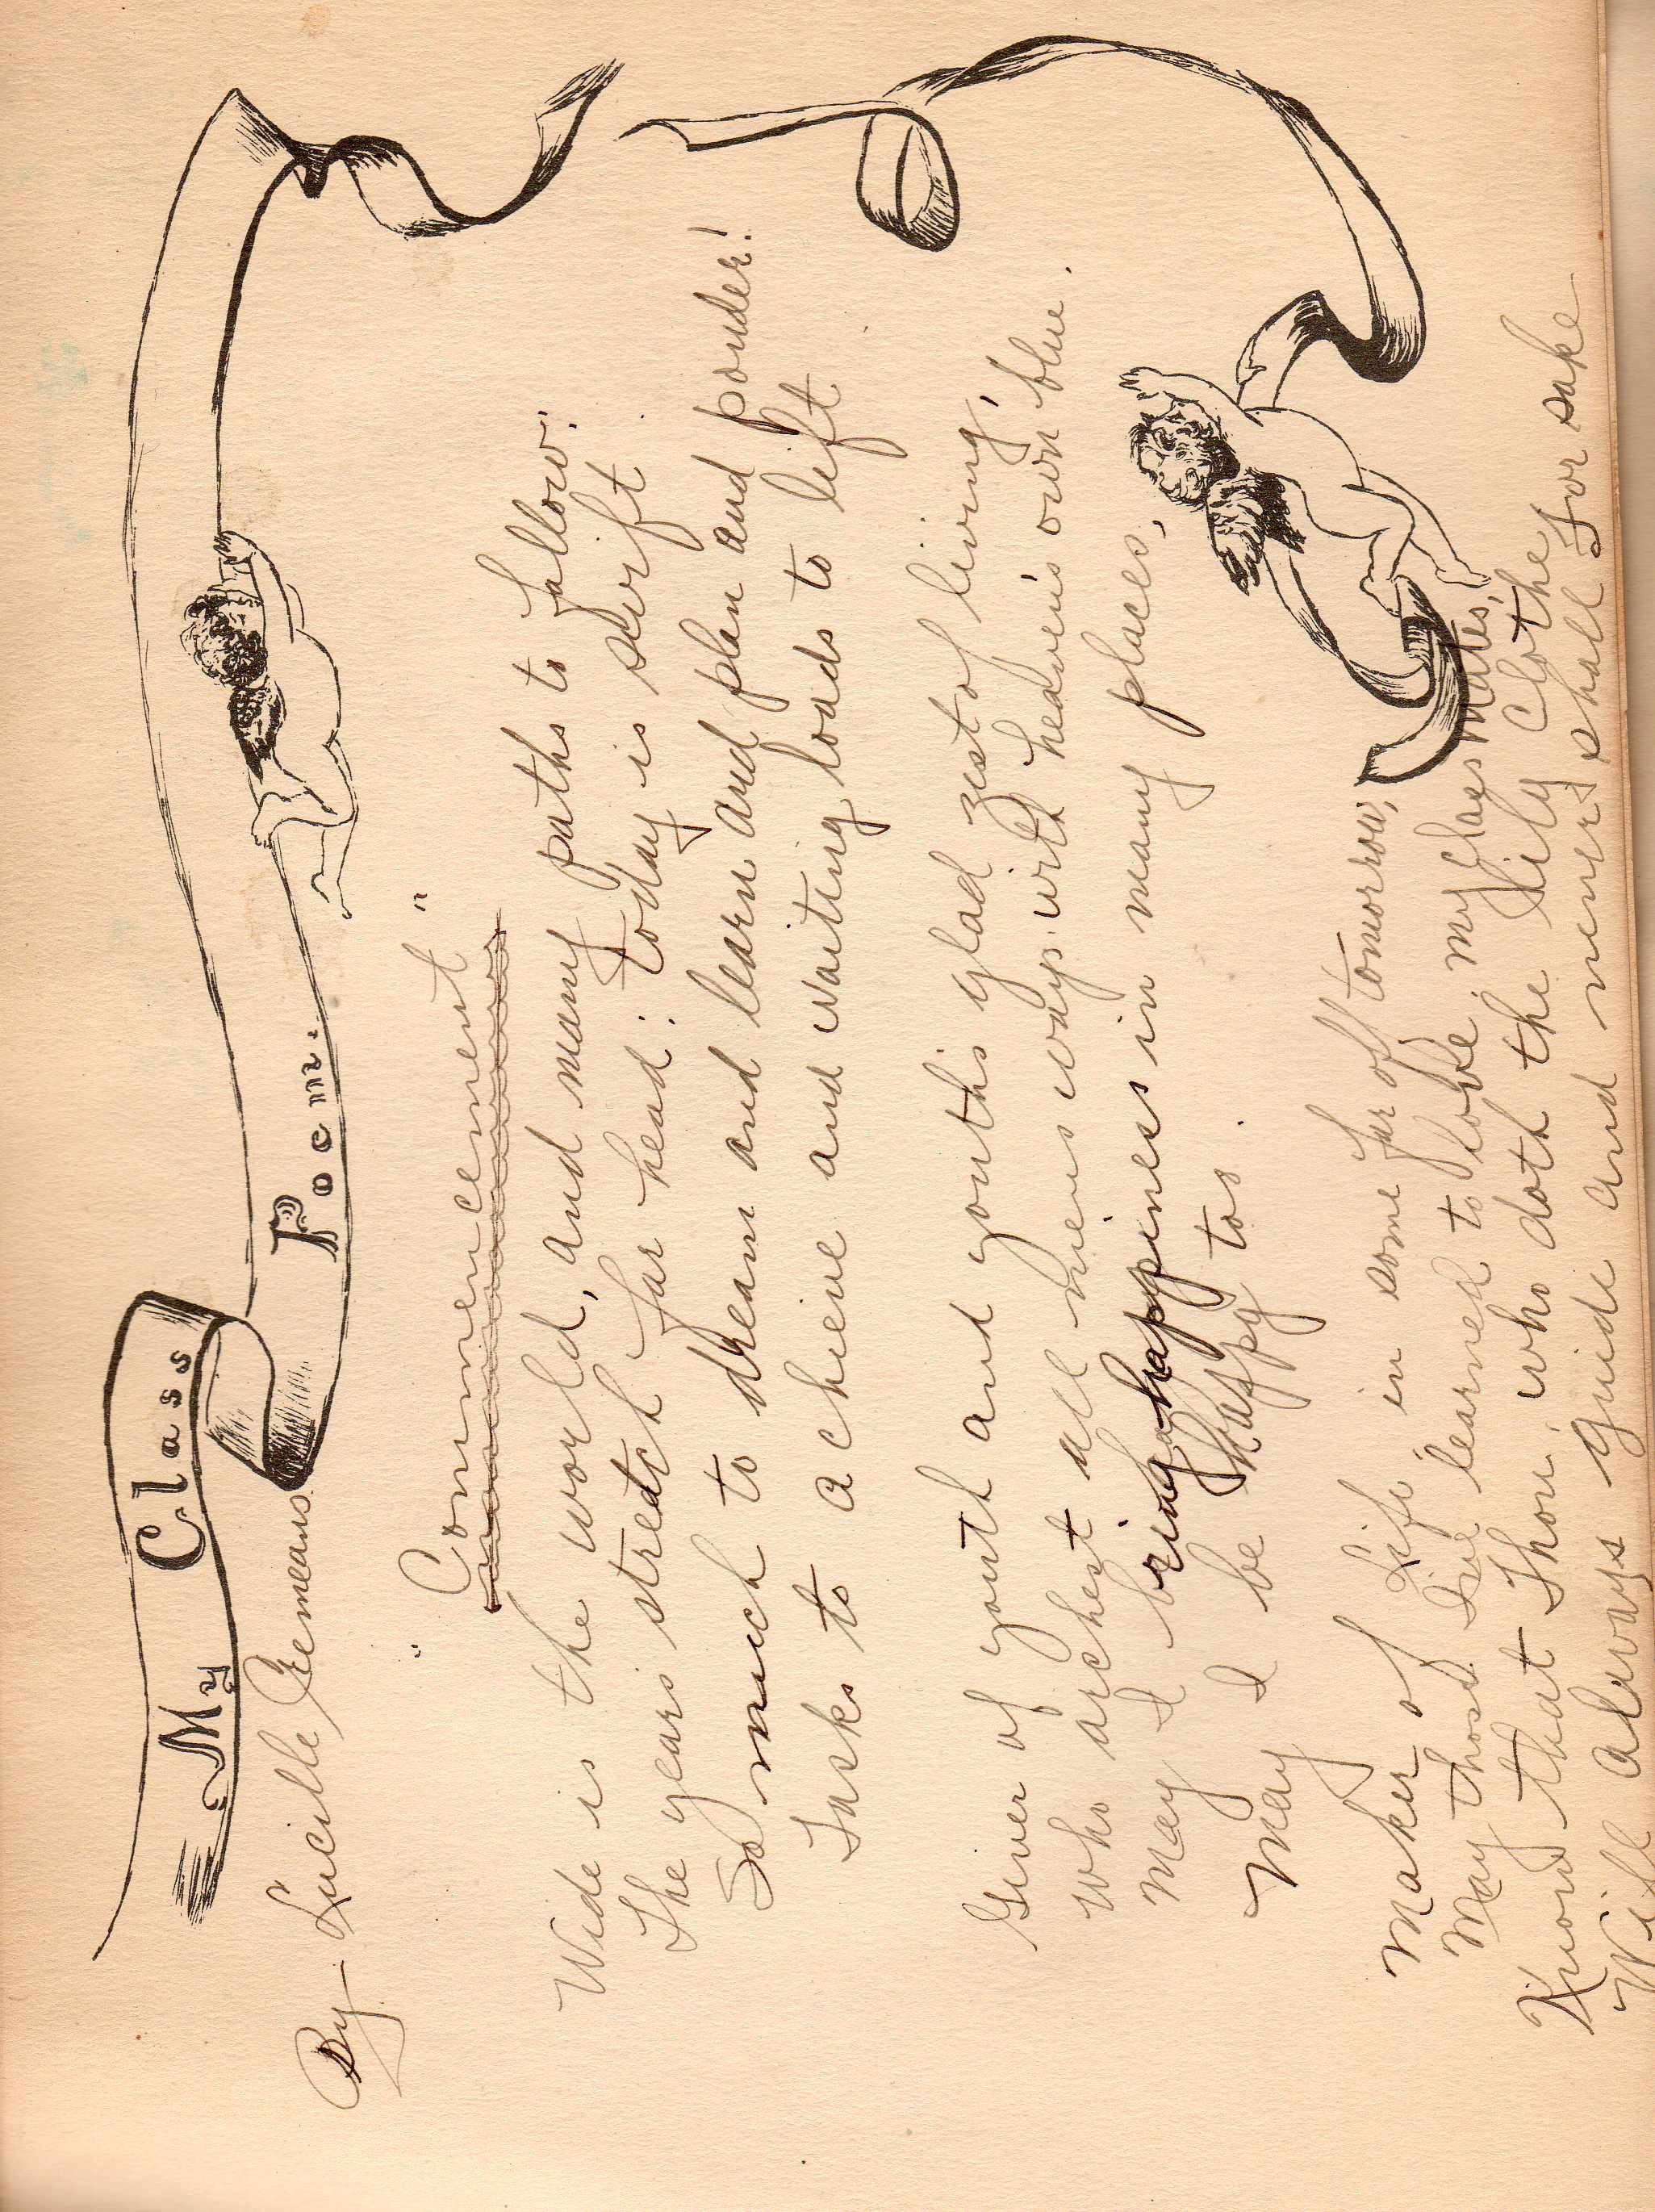 My Class Poem.
By Lucille Yemeans.
"Commencement"
Wide is the world, and many paths to follow:
The years stretch far head: today is swift
So much to dream and learn and plan and ponder!
Tasks to achieve and waiting loads to lift
Giver of youth and youth's glad zest of living,
Who archest all men's ways with heaven's own blue.
May I bring happiness in many places,
May I be happy too.
Maker of Life, in some far off tomorrow,
May those I've learned to love, my Classmates,
Know that Thou, who doth the Lily Clothe,
Will always guide and never shall for sake